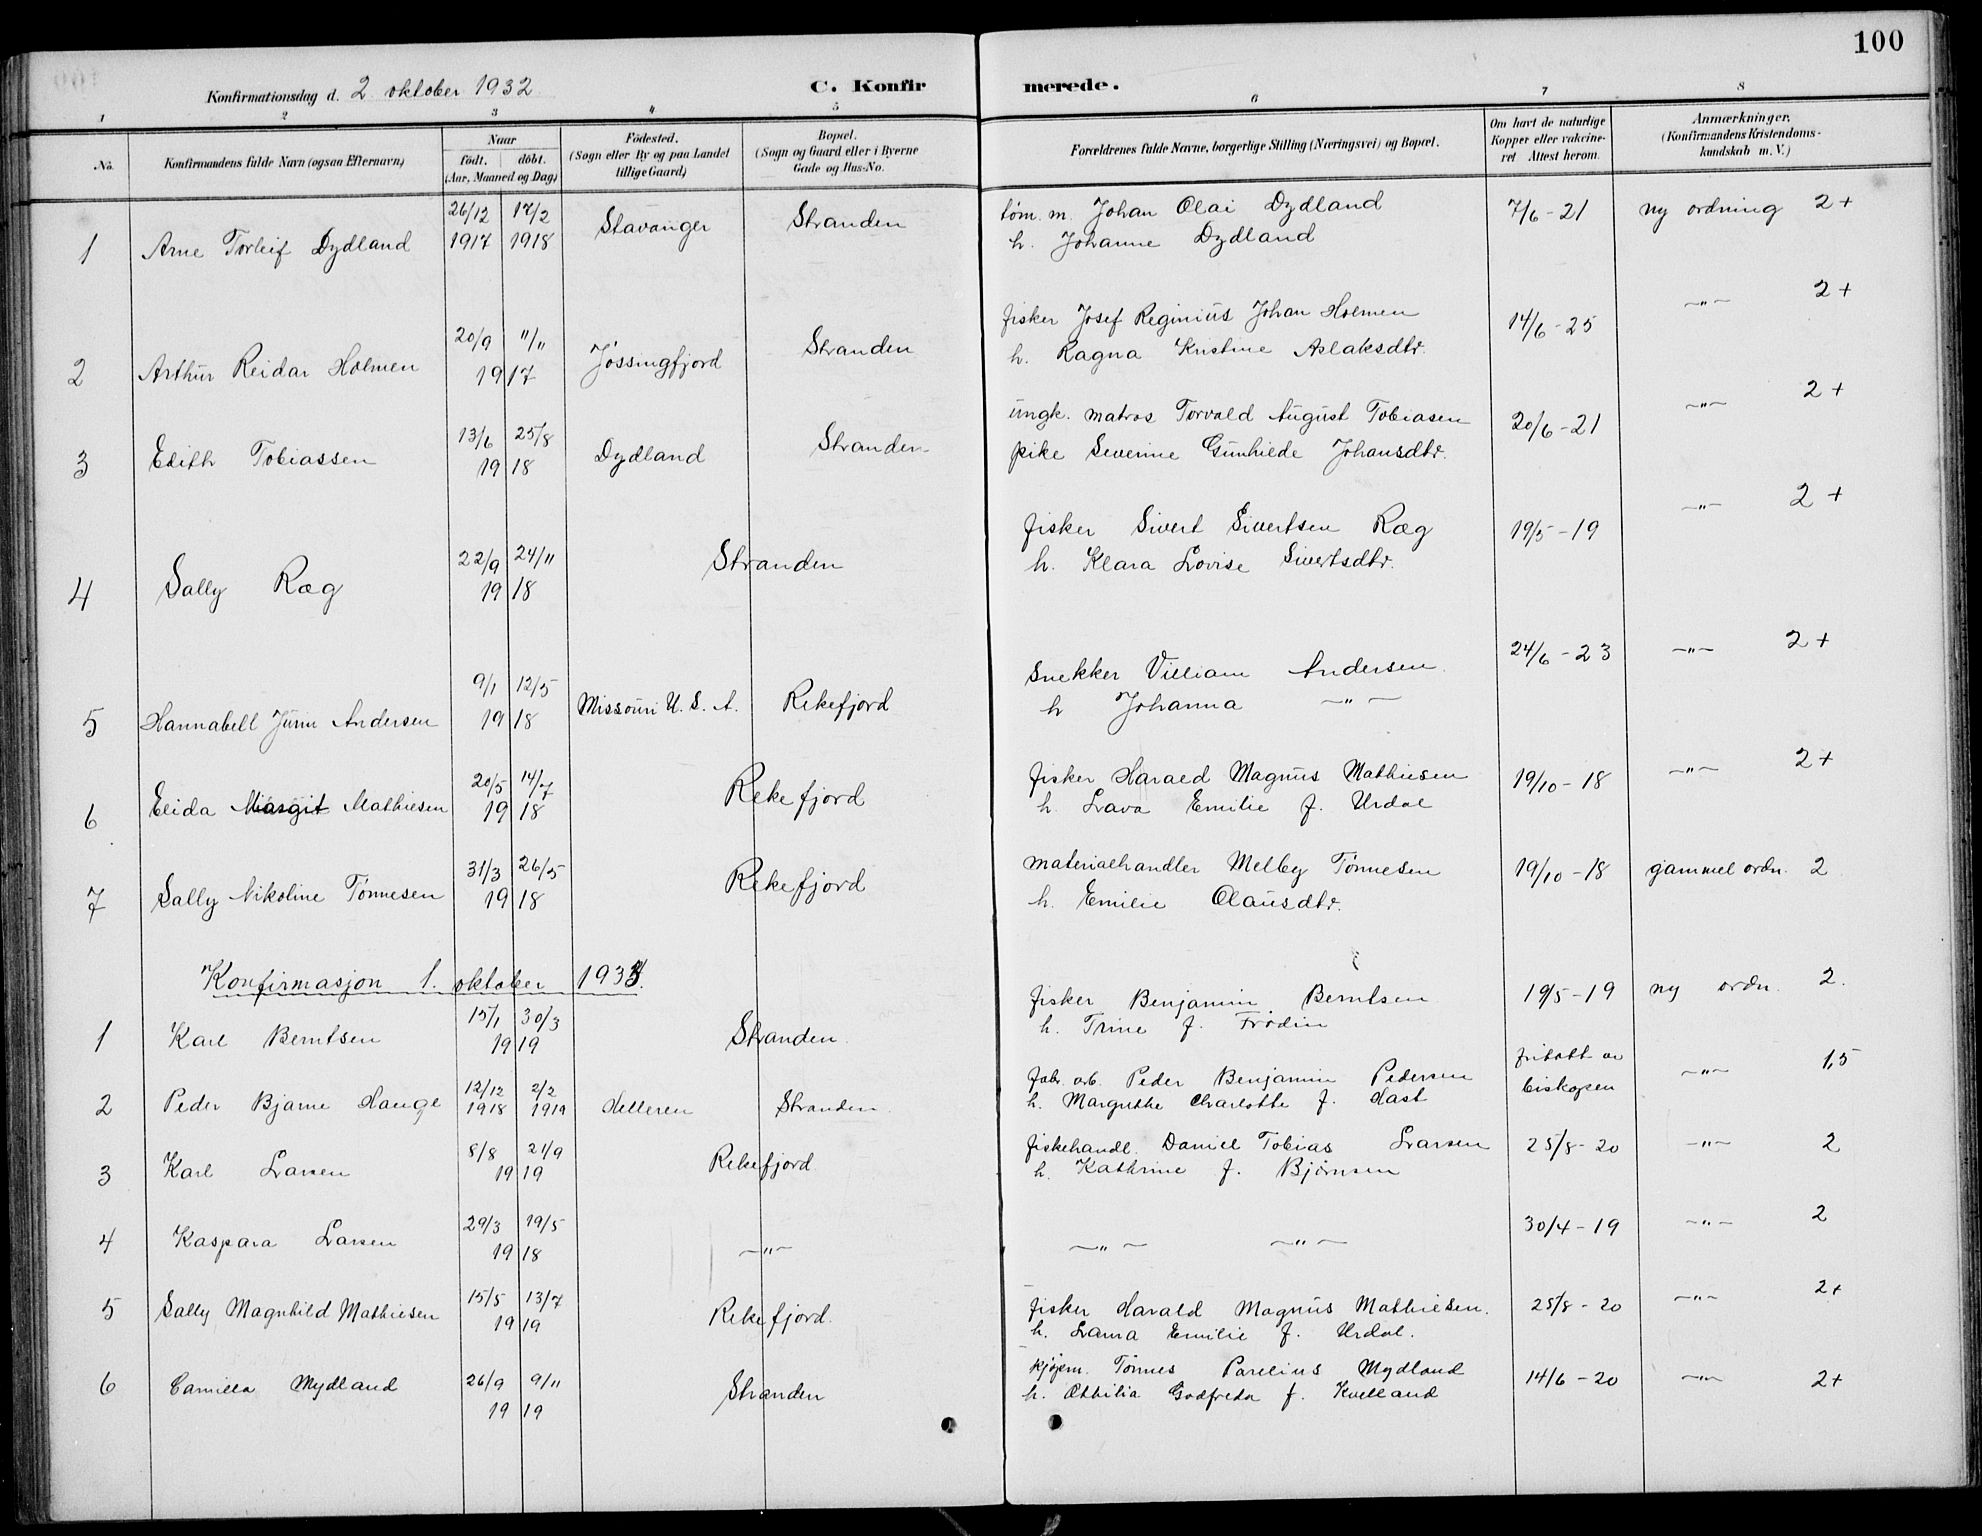 100
Konfirmationsdag d. 2 oktober 1932 C. Konfirmerede.
1 2 3 4 5 6 7 8
No. Konfirmandens fulde Navn (ogsaa Efternavn) Naar født. døbt. (Aar, Maaned og Dag) Fødested. (Sogn eller By og paa Landet tillige Gaard) Bopæl. (Sogn og Gaard eller i Byerne Gade og Hus-No. Forældrenes fulde Navne, borgerlige Stilling (Næringsvei) og Bopæl. Om havt de naturlige Kopper eller vakcineret Attest herom. Anmærkninger, (Konfirmandens Kristendomskundskab m. V.)
1 Arne Torleif Dydland 26/12 1917 17/2 1918 Stavanger Stranden tøm. m. Johan Olai Dydland 7/6-21 ny ordning 2+
h. Johanne Dydland
2 Arthur Reidar Holmen 20/9 11/11 1917 Jøssingfjord Stranden fisker Josef Reginius Johan Holmen 14/6-25 -"- 2+
h. Ragna Kristine Aslaksdtr.
3 Edith Tobiassen 13/6 25/8 1918 Dydland Stranden ungk. matros Torvald August Tobiasen 20/6-21 -"- 2+
pike Severine Gunhilde Johansdtr.
4 Sally Ræg 22/9 24/11 1918 Stranden fisker Sivert Sivertsen Ræg 19/5-19 -"- 2+
h. Klara Lovise Sivertsdtr.
5 Hannabell Andersen 9/1 12/5 1918 Missouri U. S. A. Rekefjord Snekker Villiam Andersen 24/6-23 -"- 2+
h Johanna -"-
6 Elida Margit Mathiesen 20/5 14/7 1918 Rekefjord fisker Harald Magnus Mathiesen 19/10-18 -"- 2+
h. Lava Emilie f. Urdal
7 Sally Nikoline Tønnesen 31/3 26/5 1918 Rekefjord materialhandler Melby Tønnesen 19/10-18 gammel ordn. 2
h. Emilie Olausdtr.
Konfirmasjon 1. oktober 1933.
1 Karl Berntsen 15/1 30/3 1919 Stranden fisker Benjamin Berntsen 19/5-19 ny ordn. 2.
h. Trine f. Frødin
2 Peder Bjarne Hauge 12/12 1918 2/2 1919 Helleren Stranden. fabr. arb. Peder Benjamin Pedersen fritatt av biskopen -"- 1,5
h. Margrethe Charlotte f. Hast
3 Karl Larsen 8/8 21/9 1919 Rekefjord fiskehandl. Daniel Tobias Larsen 25/8-20 -"- 2
h. Kathrine f. Bjørnsen
4 Kaspara Larsen 29/3 19/5 1918 -"- -"- -"- 30/4-19 -"- 2
5 Sally Magnhild Mathiesen 15/5 13/7 1919 Rekefjord. fisker Harald Magnus Mathiesen. 25/8-20 -"- 2+
h. Laura Emilie f. Urdal.
6 Camilla Mydland 26/9 9/11 1919 Stranden kjøpm. Tønnes Parelius Mydland 14/6-20 -"- 2+
h. Othilia Godfreda f. Kvelland